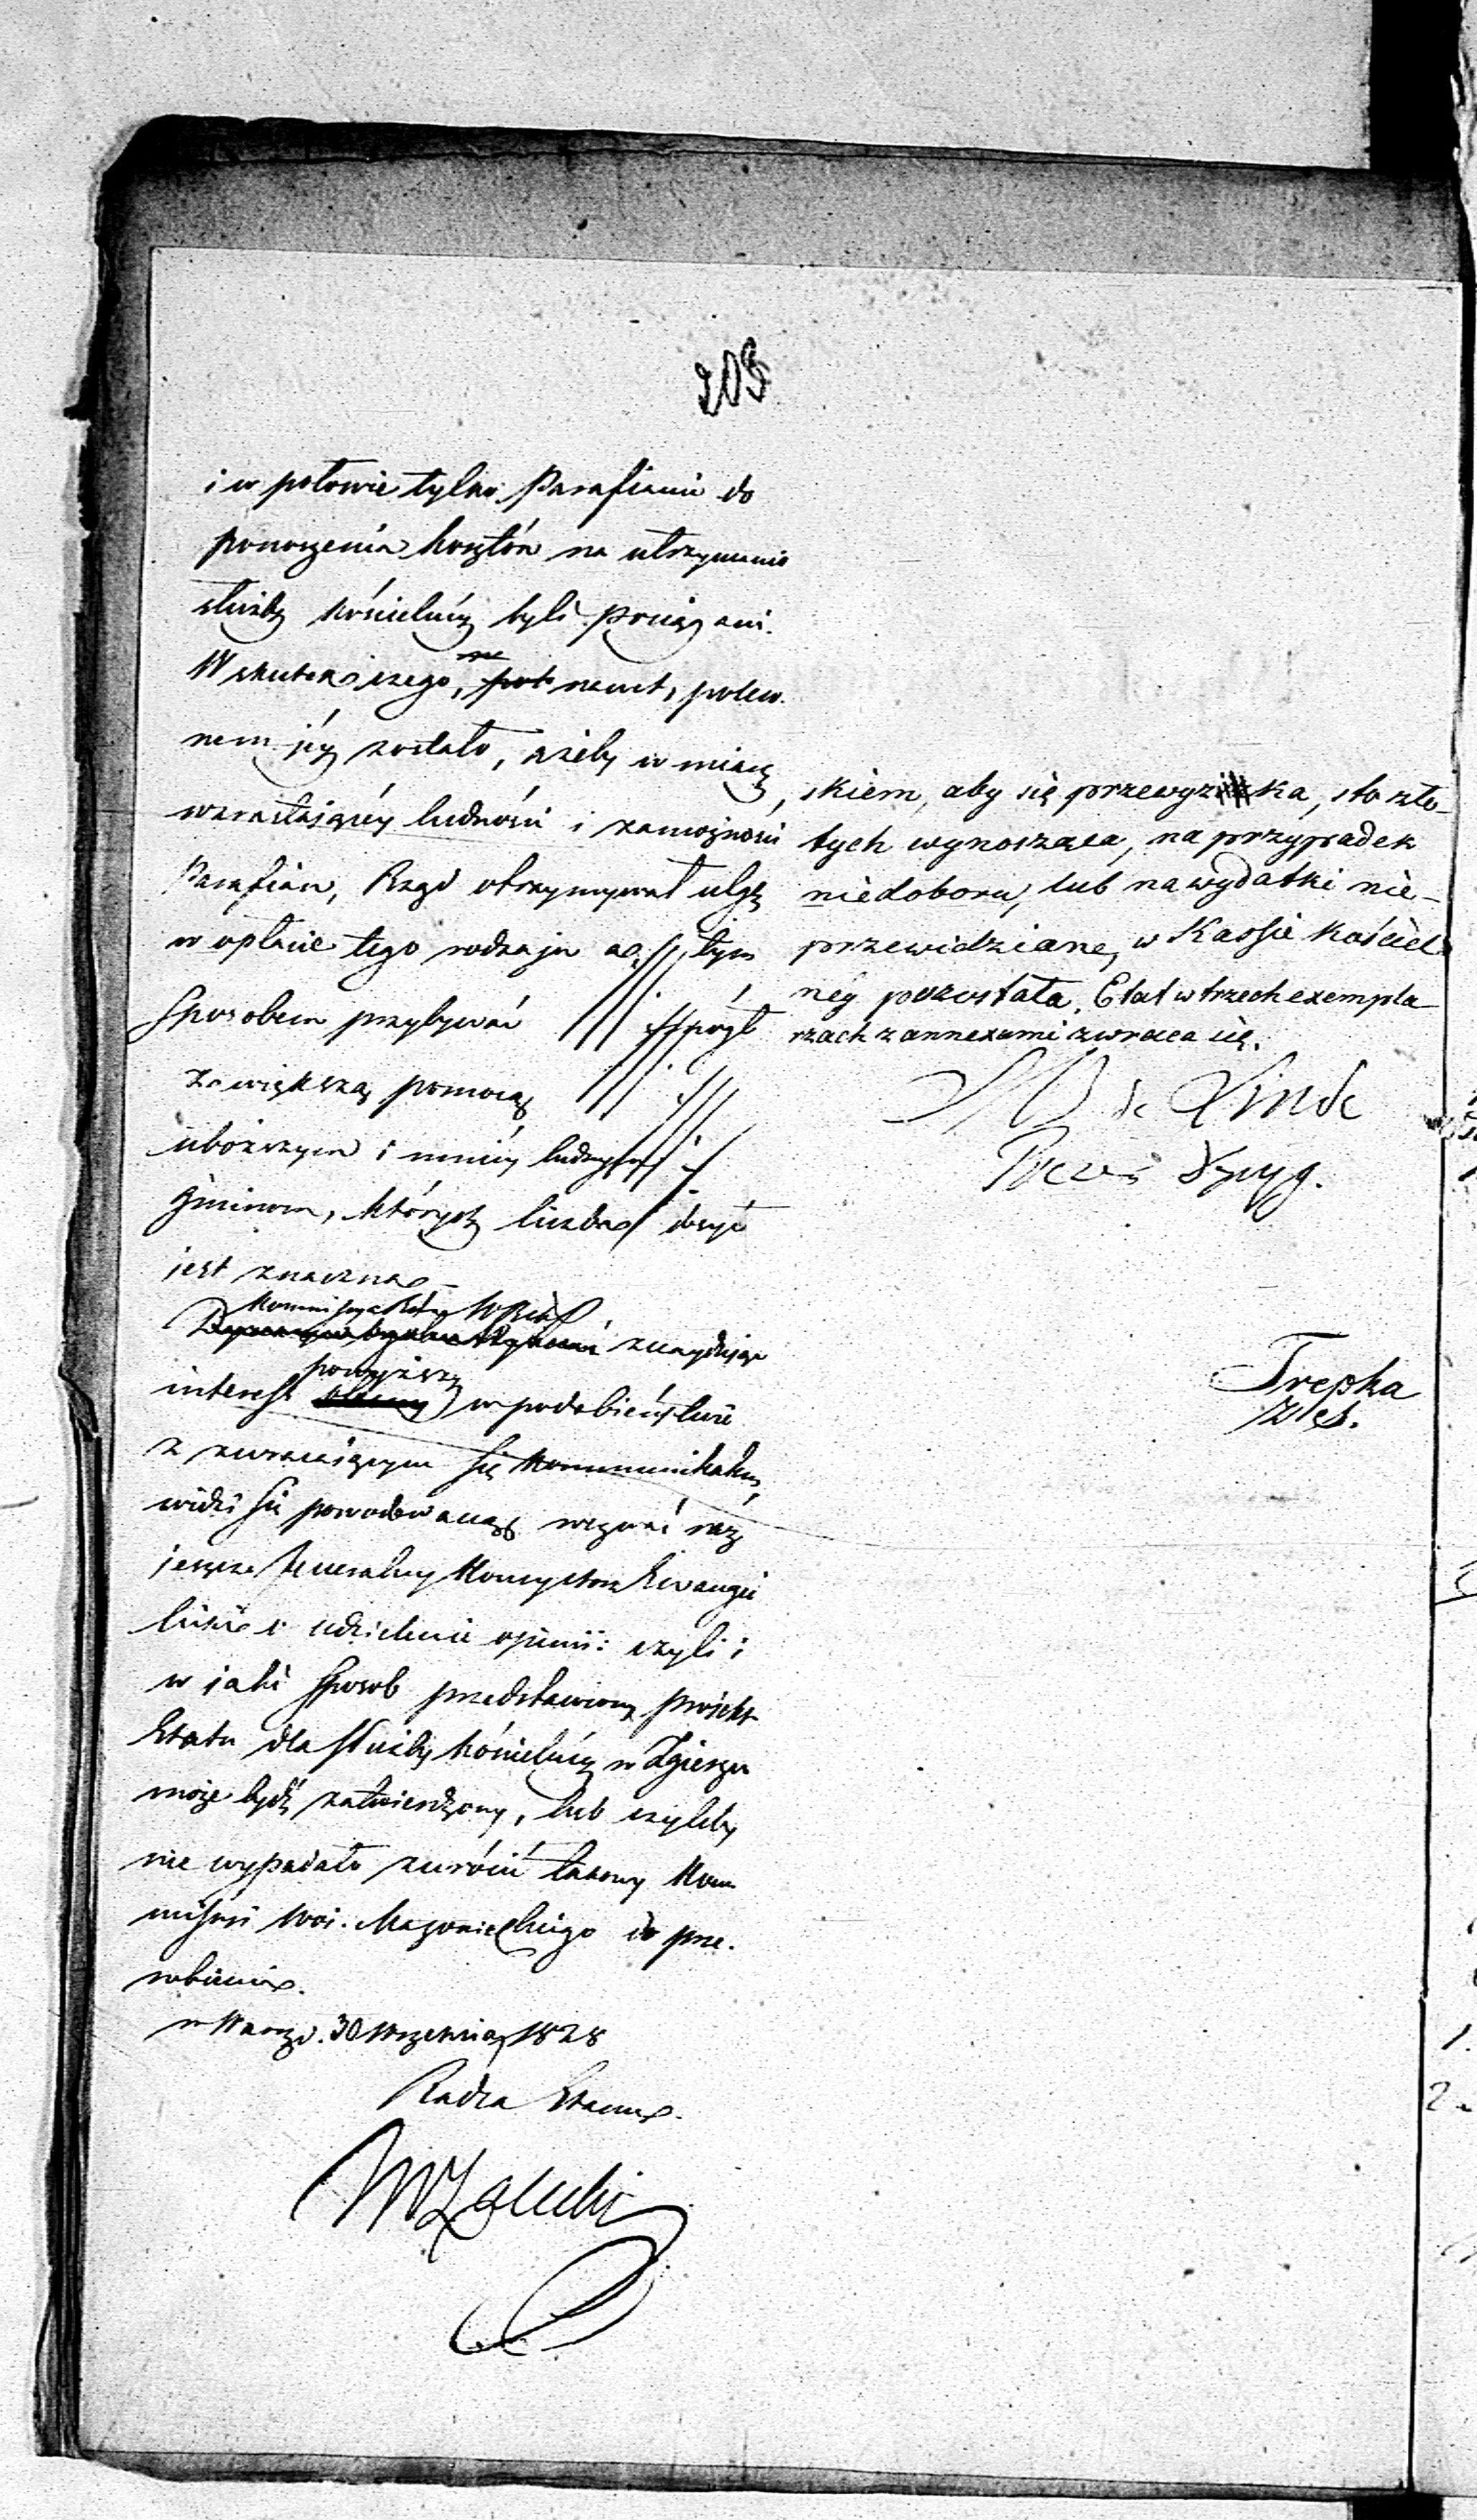 205
i w połowie tylko Parafianie do
ponoszenia kosztów na utrzymanie
służby kościelnéy byli pociągani.
W skutek czego, nawet, polew.
nem jéy zostało, ażeby w miarę
wzrastaiącéy ludności i zamożności
Parafian, Rząd otrzymywał ulgę
w opłacie tego rodzaju a tym
sposobem przybywać mógł
z większą pomocą
uboższym i mniéy ludnym
gminom, których liczba dosyć
jest znaczna
Kommissya Rząd.
znayduiąc
powyższy
interess w podobieństwie
z zwracaiącym się Kommunikatem,
widzi się powodowaną wezwać raz
jeszcze Jeneralny Konsystorz Ewangie
licki o udzielenie opinii: czyli i
w jaki sposob przedstawiony projekt
Etatu dla służby kościelnéy w Zgierzu
może bydź zatwierdzony, lub czyliby
nie wypadało zwrócić takowy Kom
missyi Woi. Mazowieckiego do prze.
robienia.
w Warsz. d. 30 Września 1828
Radca Stanu
skiem, aby się przewyżka, sto zło-
tych wynosząca, na przypadek
niedoboru, lub na wydatki nie-
przewidziane, w Kassie Kościel-
néy pozostała. Etat w trzech exempla-
rzach z annexami zwraca się.
de Linde
Prezes
Trepka